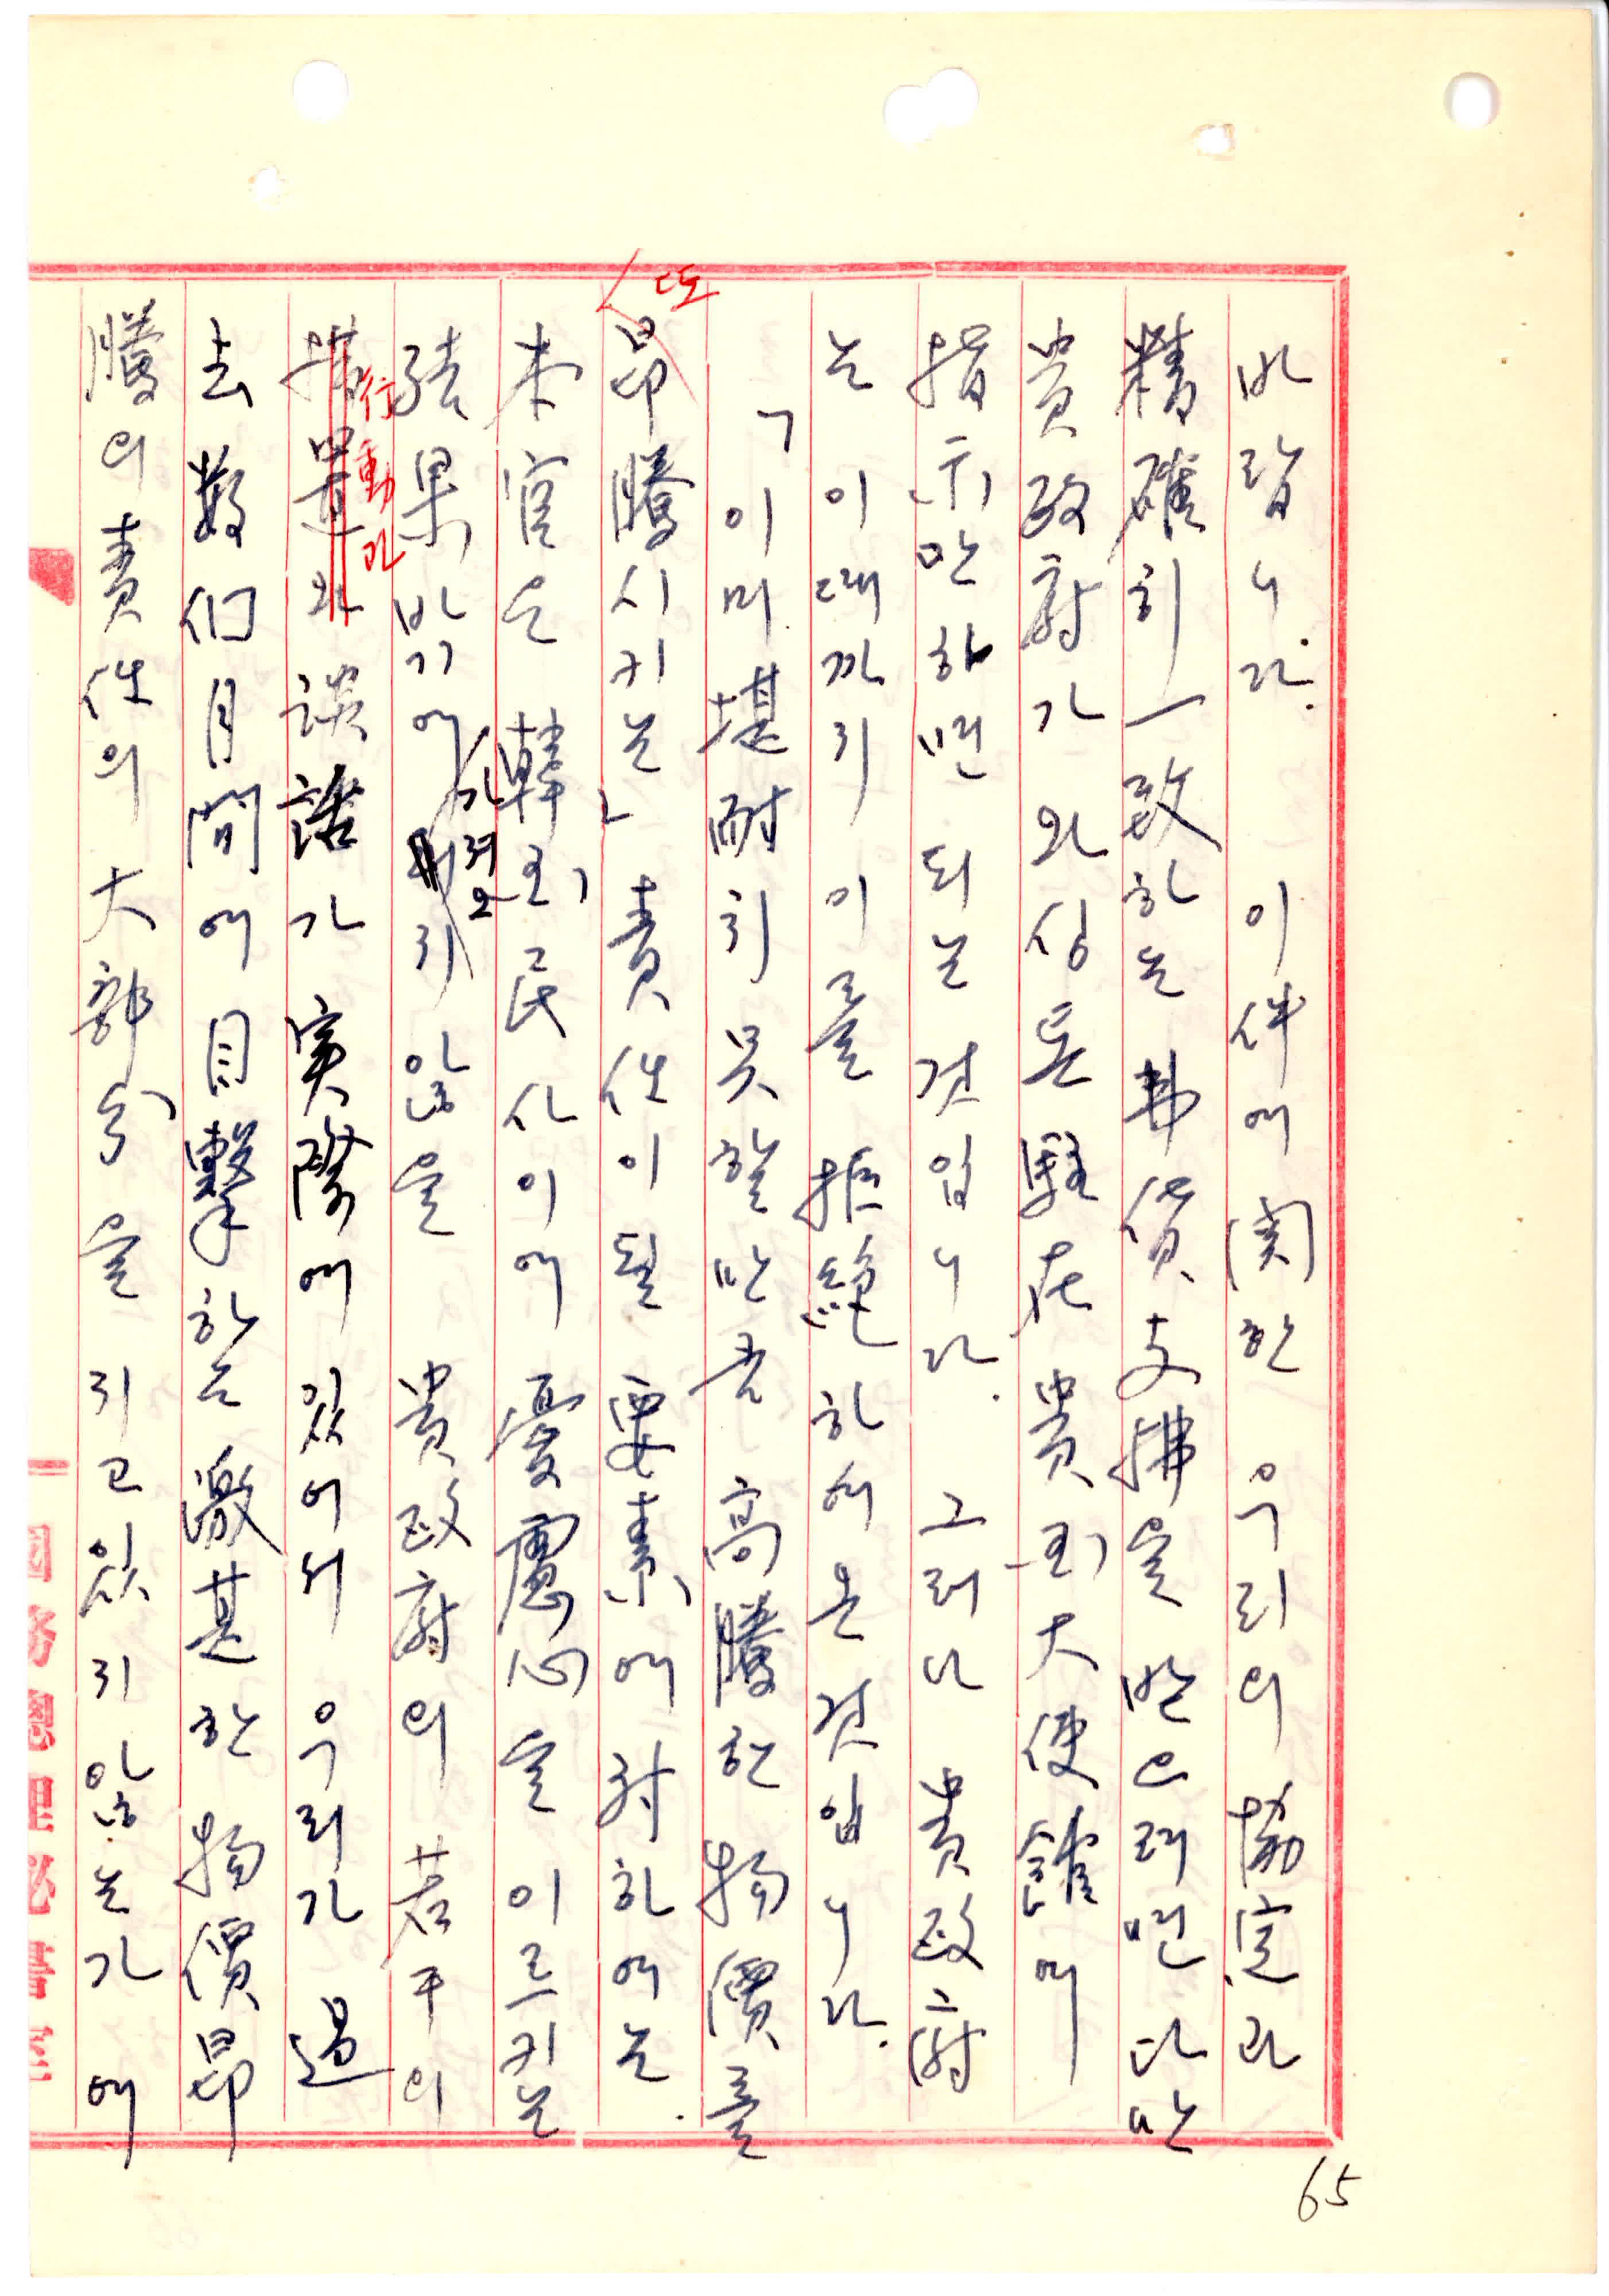 바랍니다. 이 件에 関한 우리의 協定과
精確히 一致하는 弗貨支拂을 받으려면 다만
貴政府가 와싱톤 駐在 貴国大使館에
指示만 하면 되는 것입니다. 그러나 貴政府
는 이때까지 이를 拒絶하여 온 것입니다.
「이미 堪耐히 못할 만큼 高騰한 物價를
또
昻騰시키는」 責任이 될 要素에 対하여는
本官은 韓国民 사이에 憂慮心을 이르키는
結果 밖에 가져오지 않을 貴政府의 若干의
行動과
措置와 談話가 実際에 있어서 우리가 過
去 数個月間에 目擊하는 激甚한 物價昻
騰의 責任의 大部分을 지고 있지 않는가 에
65